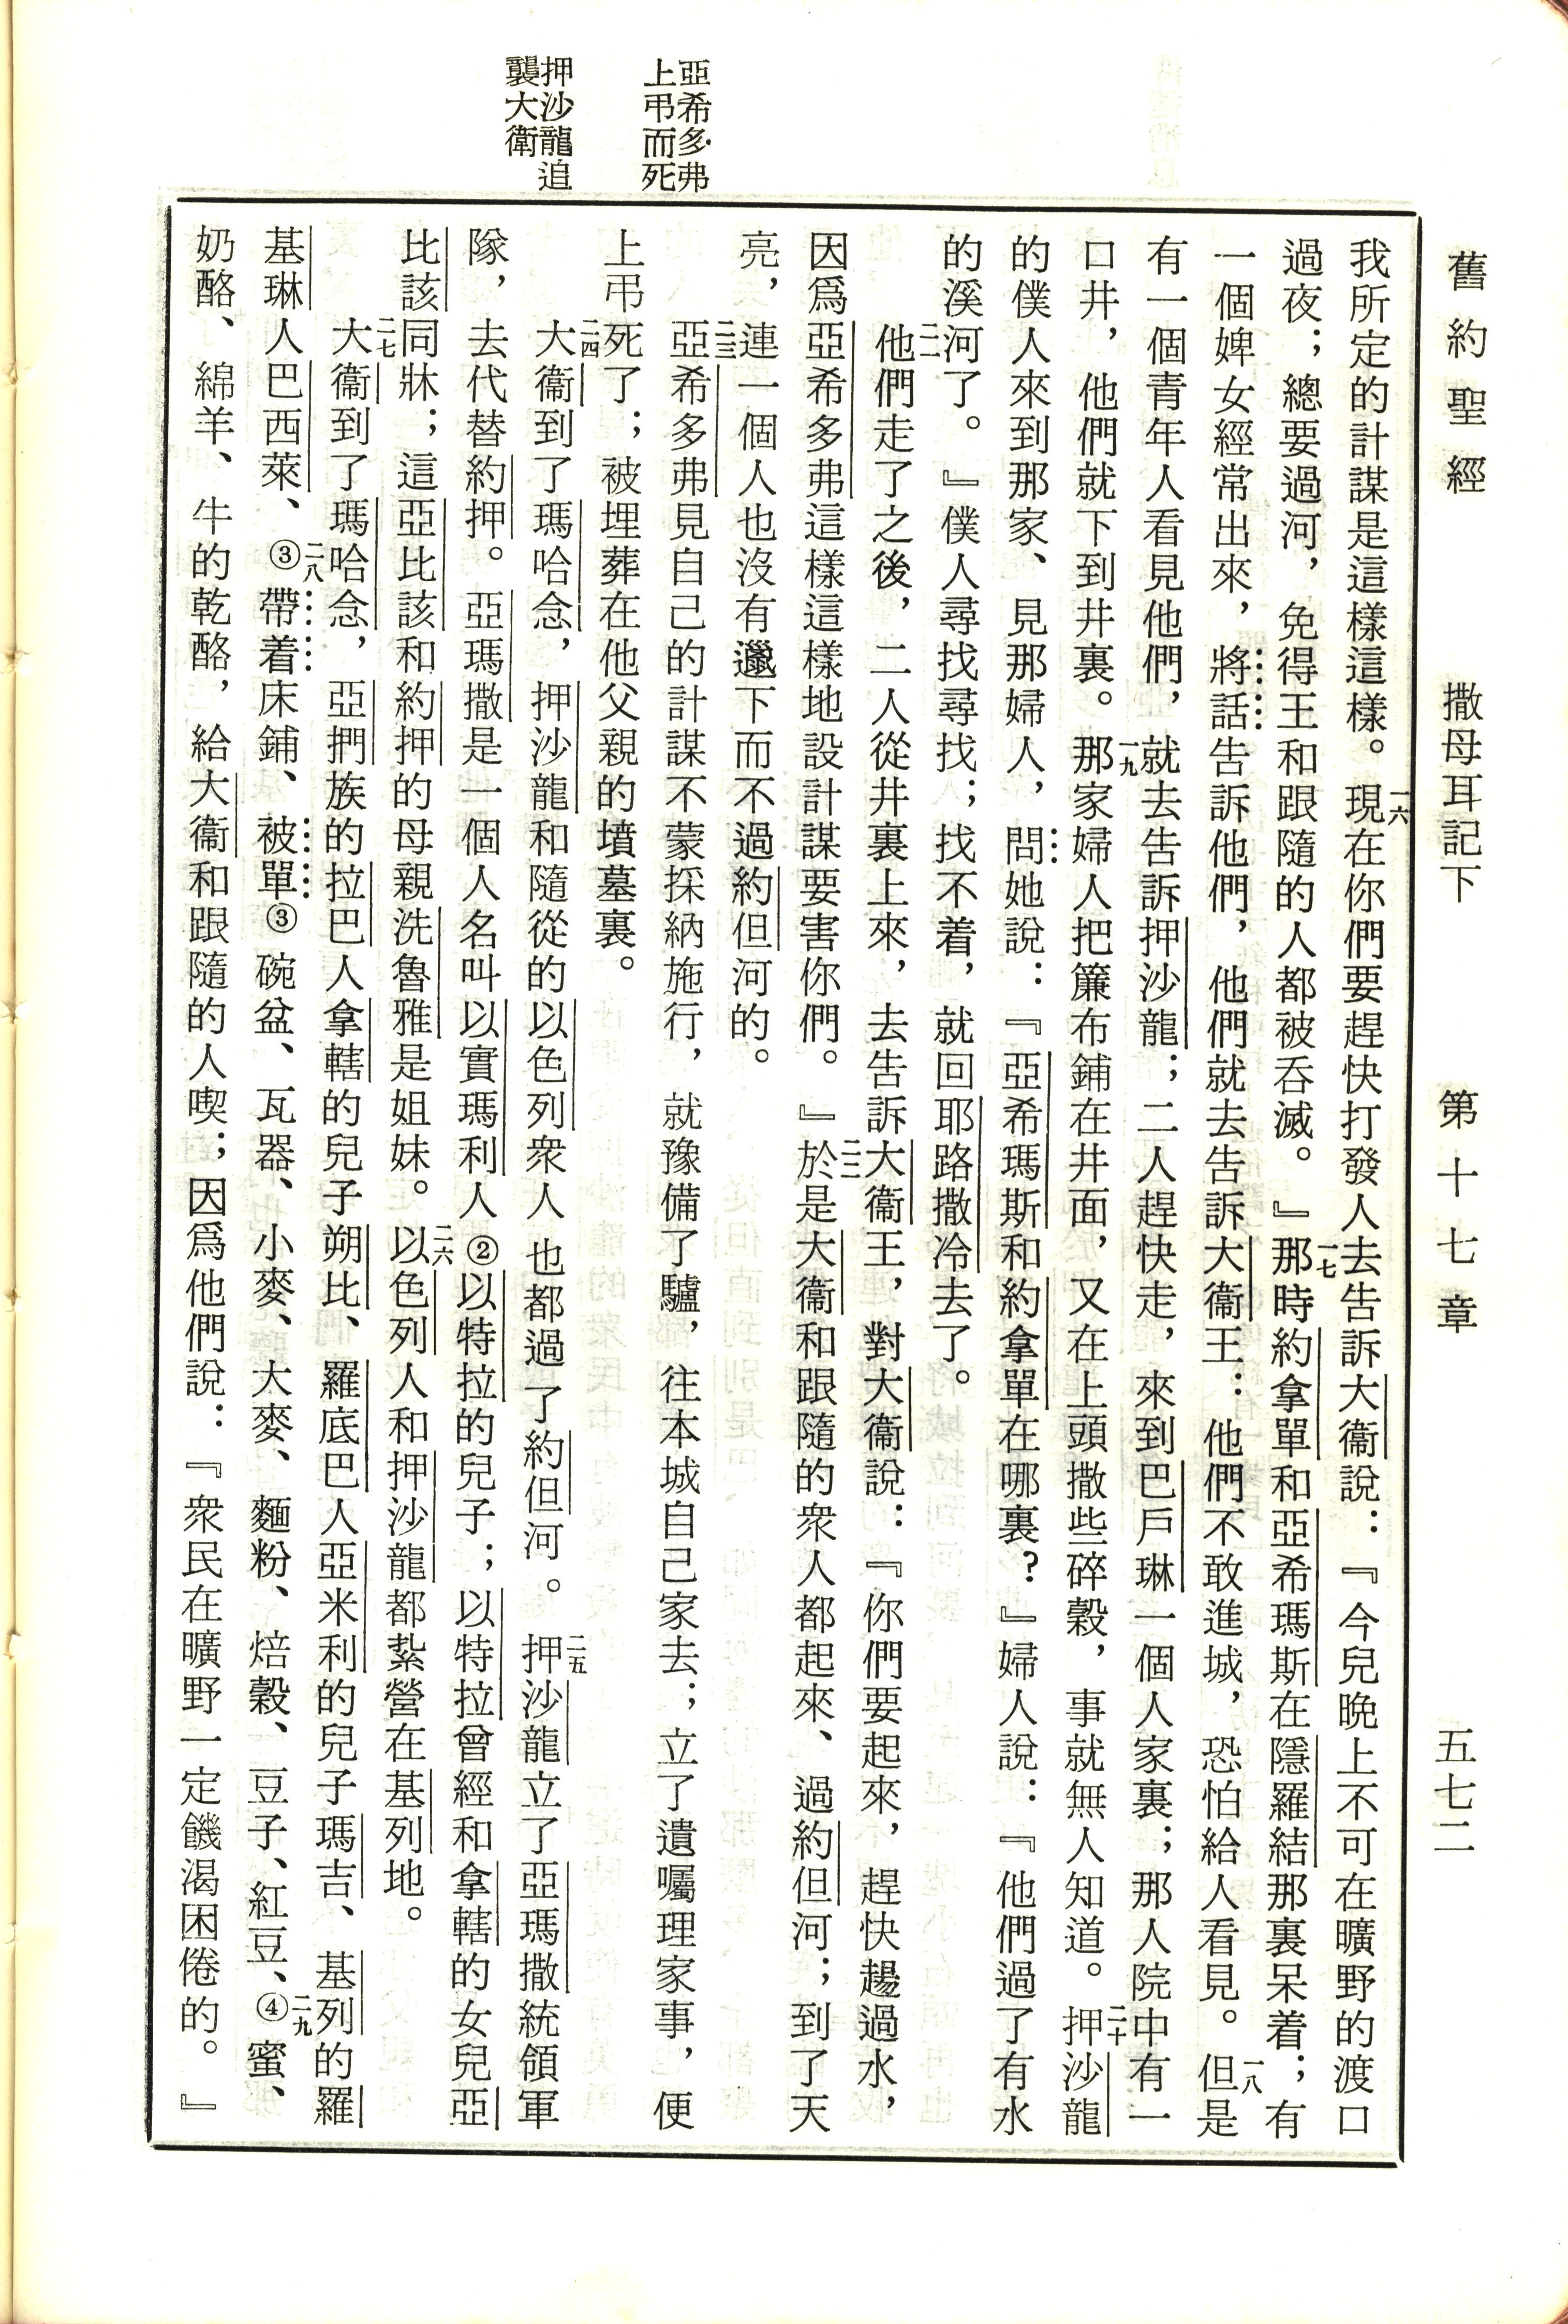 舊約聖經 撒母耳記下 第十七章 五七二
我所定的計謀是這樣這樣。一六現在你們要趕快打發人去告訴大衞說：『今兒晚上不可在曠野的渡口
過夜；總要過河，免得王和跟隨的人都被吞滅。』一七那時約拿單和亞希瑪斯在隱羅結那裏呆着；有
一個婢女經常出來，將話告訴他們，他們就去告訴大衞王：他們不敢進城，恐怕給人看見。一八但是
有一個青年人看見他們，就去告訴押沙龍；二人趕快走，來到巴戶琳一個人家裏；那人院中有一
口井，他們就下到井裏。一九那家婦人把簾布鋪在井面，又在上頭撒些碎穀，事就無人知道。二十押沙龍
的僕人來到那家、見那婦人，問她說：『亞希瑪斯和約拿單在哪裏？』婦人說：『他們過了有水
的溪河了。』僕人尋找尋找；找不着，就回耶路撒冷去了。
二一他們走了之後，二人從井裏上來，去告訴大衞王，對大衞說：『你們要起來，趕快趟過水，
因爲亞希多弗這樣這樣地設計謀要害你們。』二二於是大衞和跟隨的衆人都起來、過約但河；到了天
亮，連一個人也沒有邋下而不過約但河的。
亞希多弗上弔而死
二三亞希多弗見自己的計謀不蒙採納施行，就豫備了驢，往本城自己家去；立了遺囑理家事，便
上弔死了；被埋葬在他父親的墳墓裏。
押沙龍追襲大衛
二四大衞到了瑪哈念，押沙龍和隨從的以色列衆人也都過了約但河。二五押沙龍立了亞瑪撒統領軍
隊，去代替約押。亞瑪撒是一個人名叫以實瑪利人②以特拉的兒子；以特拉曾經和拿轄的女兒亞
比該同牀；這亞比該和約押的母親洗魯雅是姐妹。二六以色列人和押沙龍都紮營在基列地。
二七大衞到了瑪哈念，亞捫族的拉巴人拿轄的兒子朔比、羅底巴人亞米利的兒子瑪吉、基列的羅
基琳人巴西萊、二八③帶着床鋪、被單③碗盆、瓦器、小麥、大麥、麵粉、焙穀、豆子、紅豆、④二九蜜、
奶酪、綿羊、牛的乾酪，給大衞和跟隨的人喫；因爲他們說：『衆民在曠野一定饑渴困倦的。』